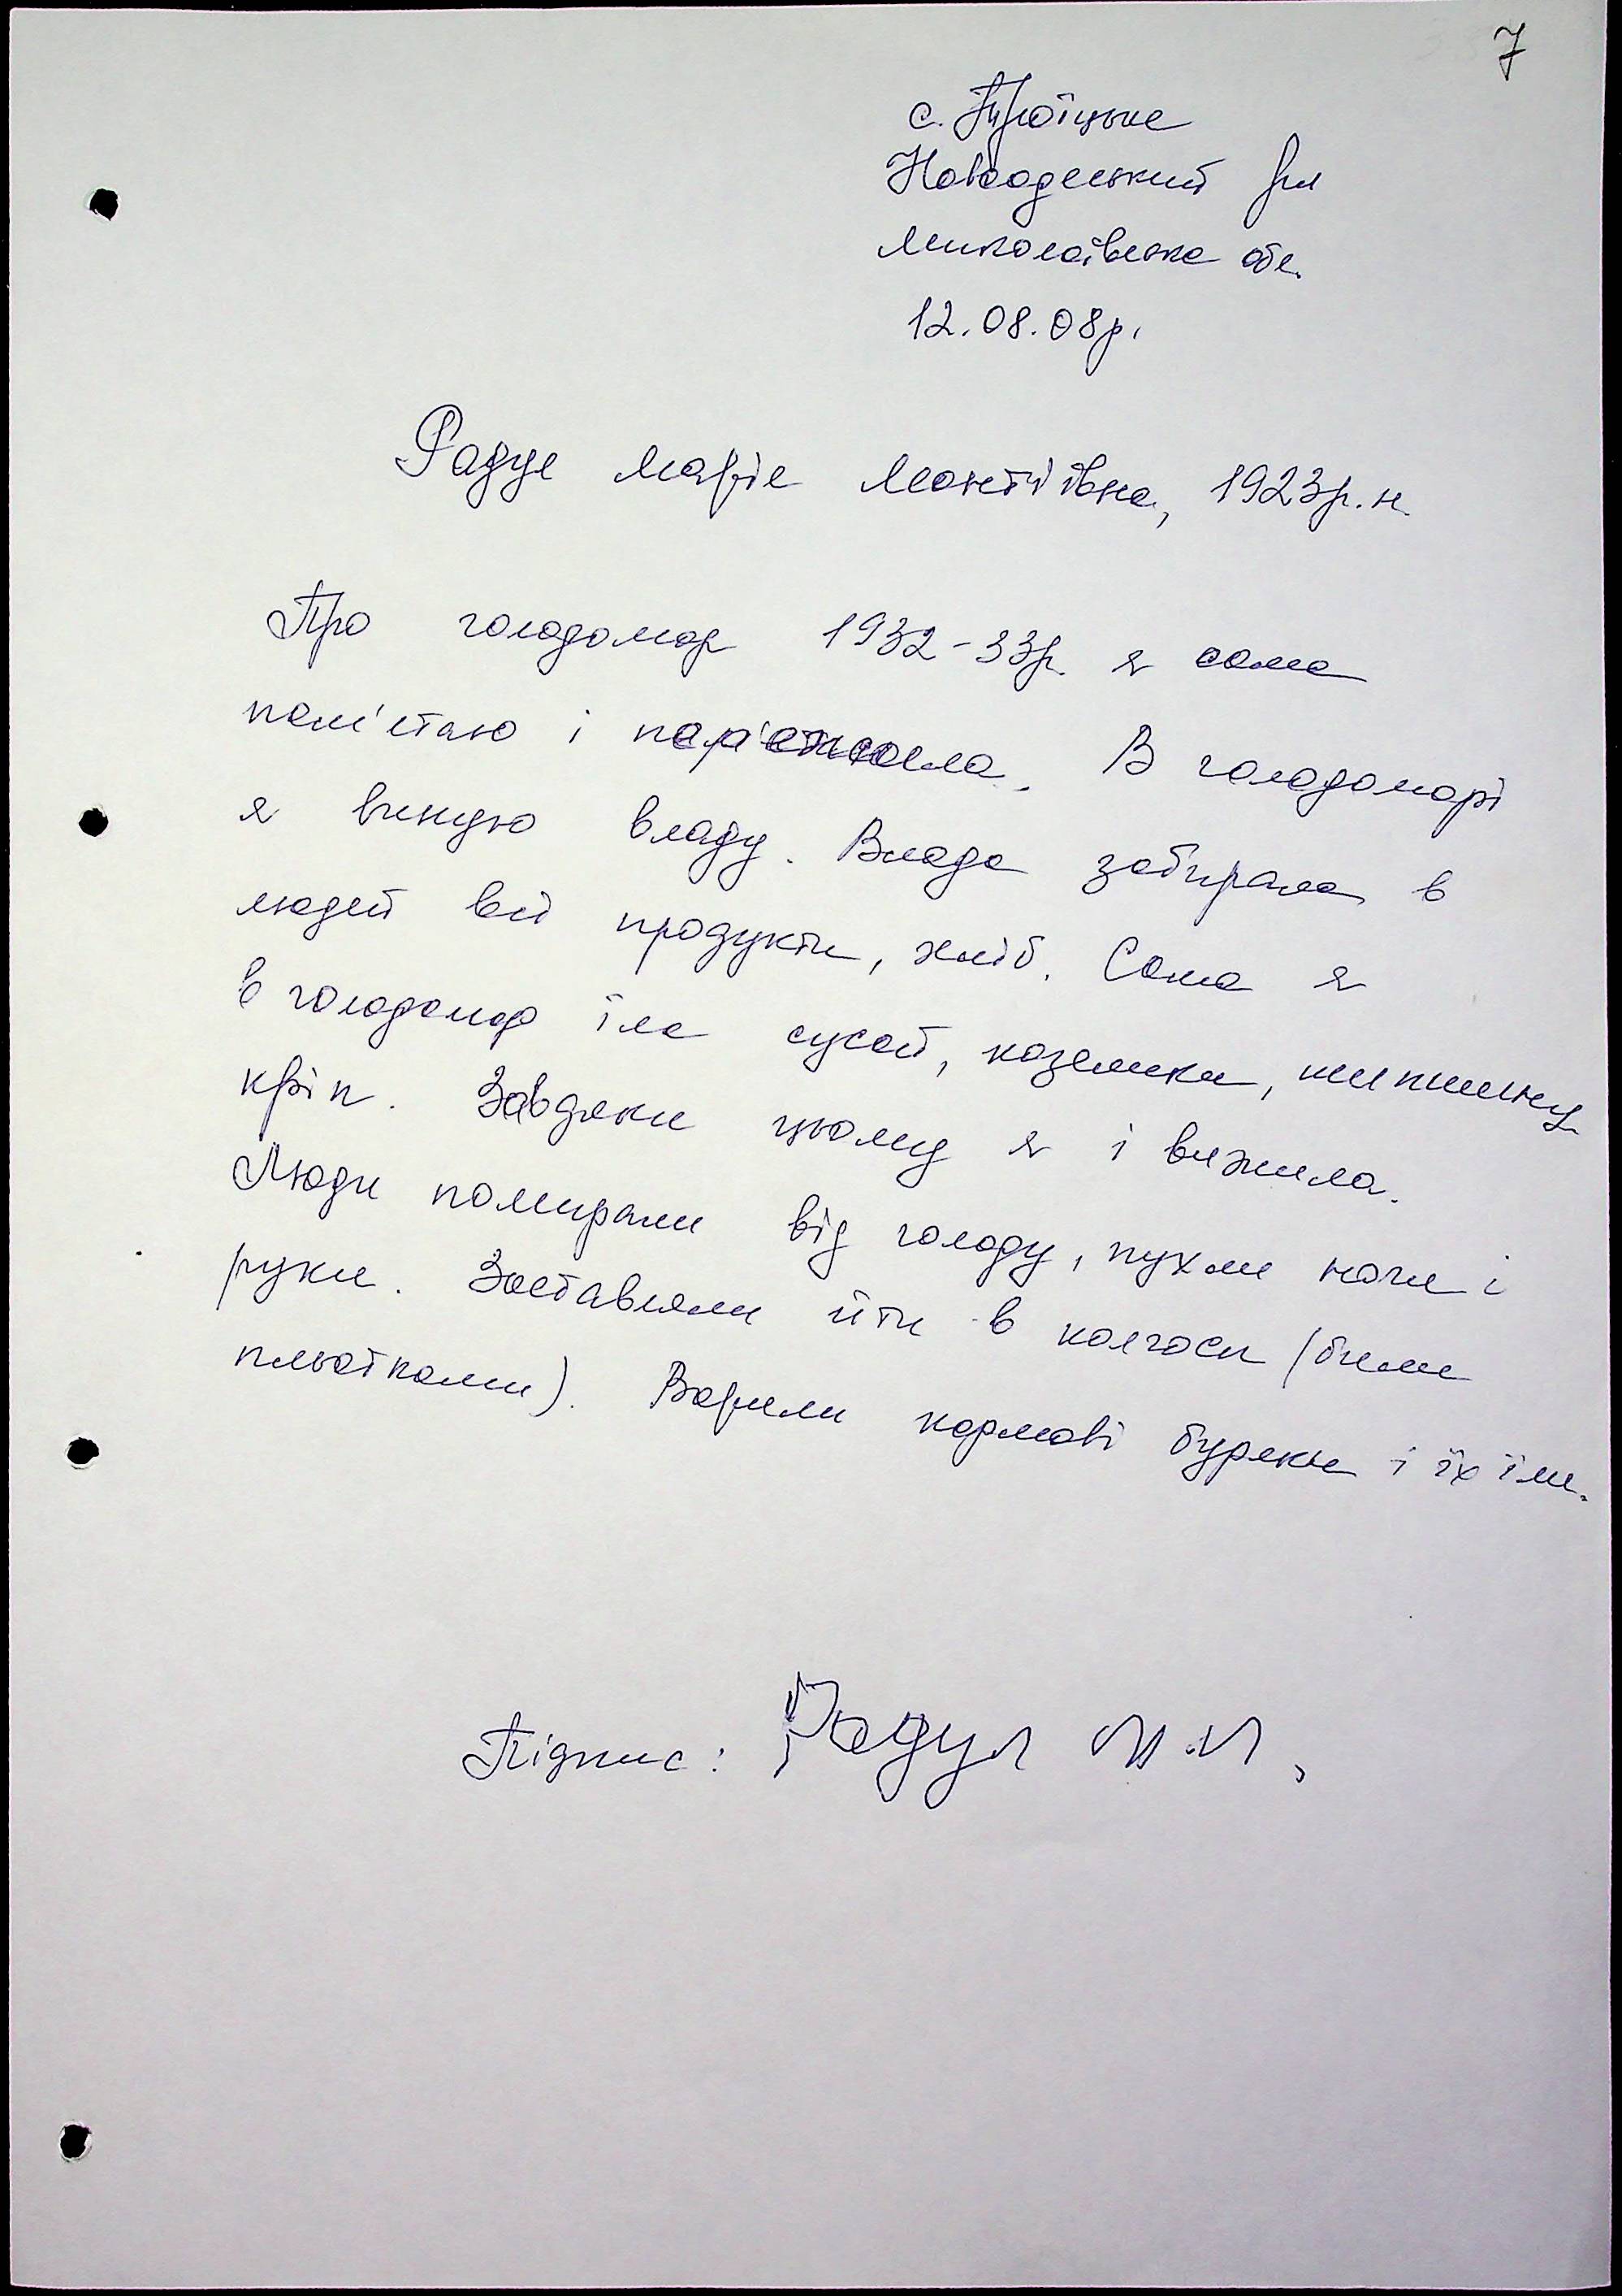 7
с. Троїцьке
Новоодеський р-н
Миколаївська обл.
12.08.08р.
Радул Марія Мантіївна, 1923р.н.
Про голодомор 1932-33р. я сама
пам'ятаю і В голодоморі
я виную владу. Влада забирала в
людей всі продукти, хліб. Сама я
в голодомор їла сусой, козелики, шипшину
кріп. Завдяки цьому я і вижила.
Люди помирали від голоду, пухли ноги і
руки. Заставляли йти в колгосп (били
пльотками). Варили кормові буряки і їх їли.
Підпис: Радул М.М.